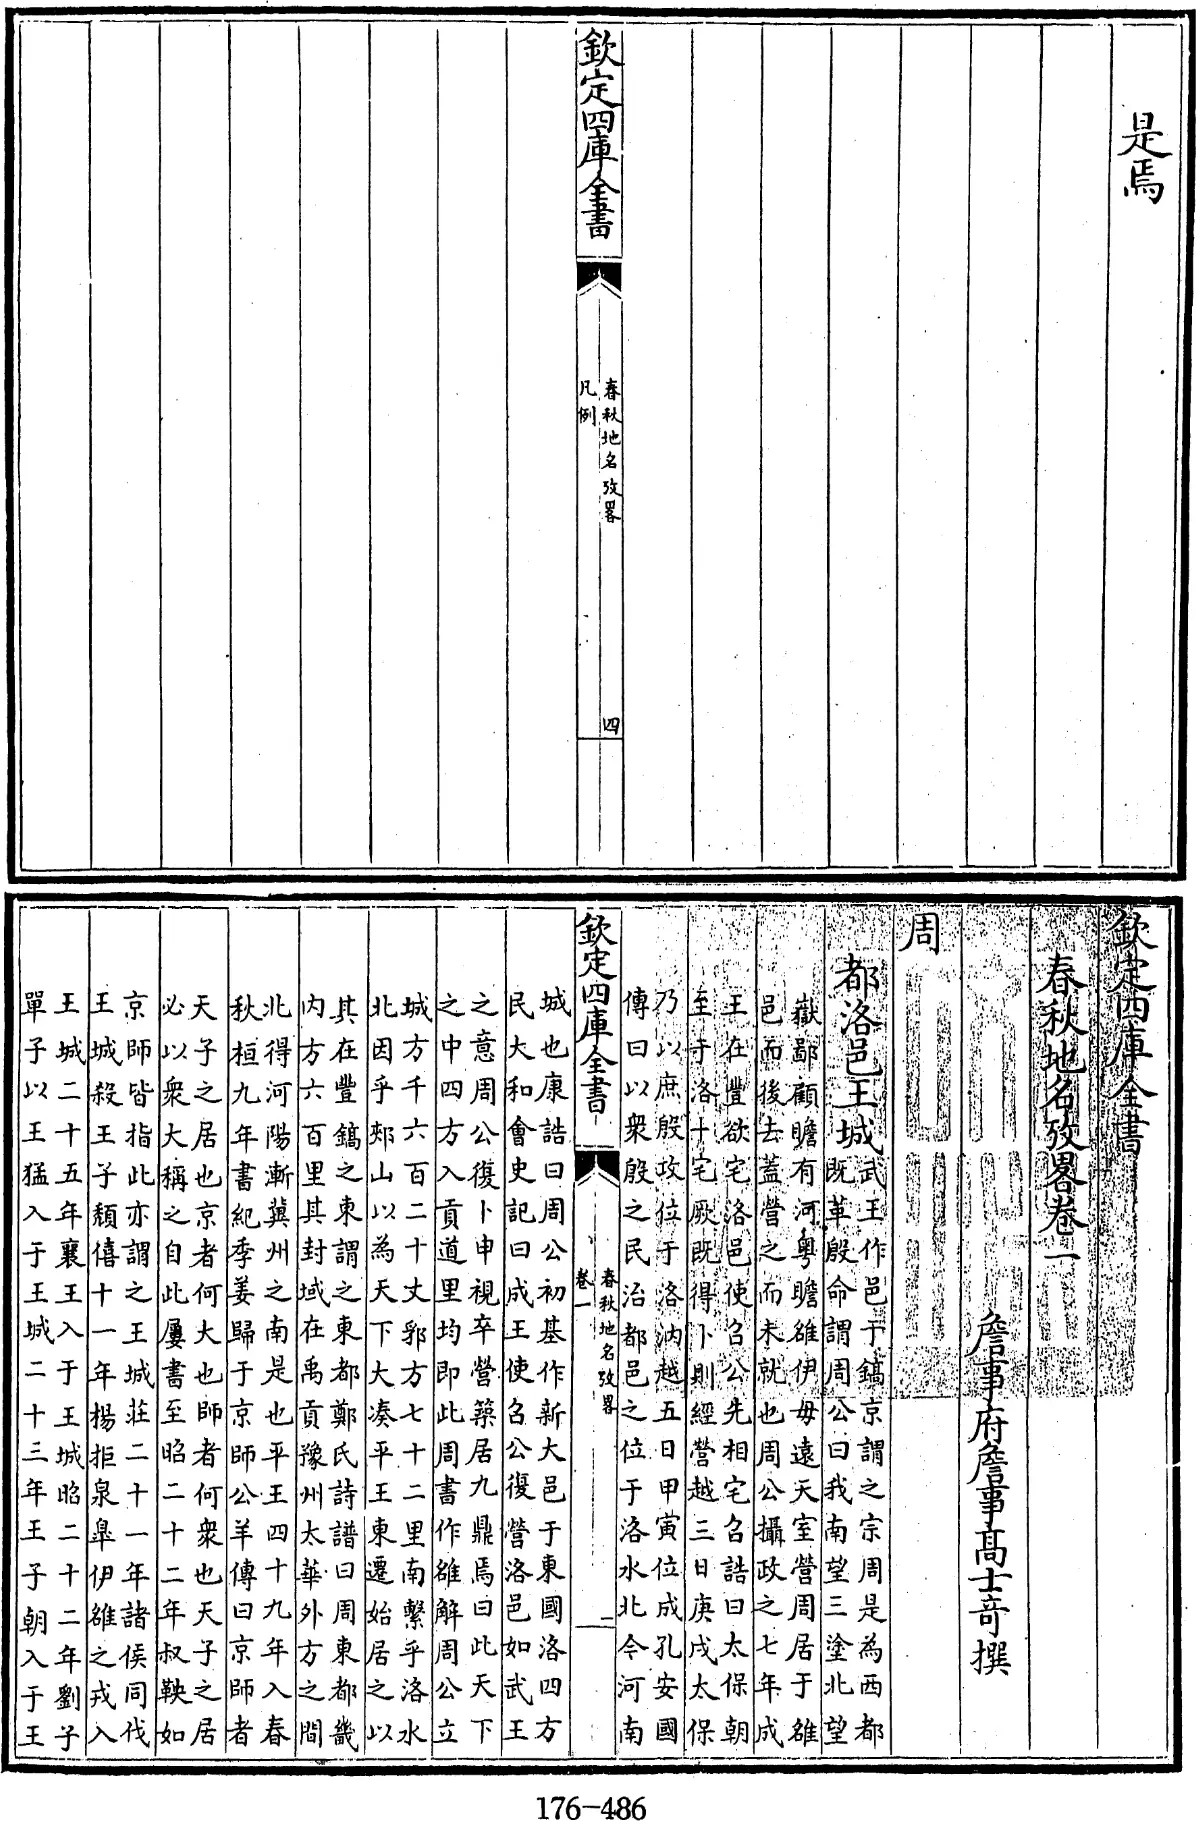 是焉
欽定四庫全書
春秋地名攷畧
凡例
四
欽定四庫全書
春秋地名攷畧卷一
詹事府詹事高士奇撰
周
都洛邑王城武王作邑于鎬京謂之宗周是為西都
既革殷命謂周公曰我南望三塗北望
嶽鄙顧瞻有河粵瞻雒伊毋遠天室營周居于雒
邑而後去蓋營之而未就也周公攝政之七年成
王在豐欲宅洛邑使召公先相宅召誥曰太保朝
至于洛卜宅厥既得卜則經營越三日庚戌太保
乃以庶殷攻位于洛汭越五日甲寅位成孔安國
傳曰以衆殷之民治都邑之位于洛水北今河南
欽定四庫全書
春秋地名攷畧
卷一
二
城也康誥曰周公初基作新大邑于東國洛四方
民大和會史記曰成王使召公復營洛邑如武王
之意周公復卜申視卒營築居九鼎焉曰此天下
之中四方入貢道里均即此周書作雒解周公立
城方千六百二十丈郛方七十二里南繫乎洛水
北因乎郟山以為天下大凑平王東遷始居之以
其在豐鎬之東謂之東都鄭氏詩譜曰周東都畿
內方六百里其封域在禹貢豫州太華外方之間
北得河陽漸冀州之南是也平王四十九年入春
秋桓九年書紀季姜歸于京師公羊傳曰京師者
天子之居也京者何大也師者何衆也天子之居
必以衆大稱之自此屢書至昭二十二年叔鞅如
京師皆指此亦謂之王城莊二十一年諸侯同伐
王城殺王子頹僖十一年楊拒泉臯伊雒之戎入
王城二十五年襄王入于王城昭二十二年劉子
單子以王猛入于王城二十三年王子朝入于王
176-486